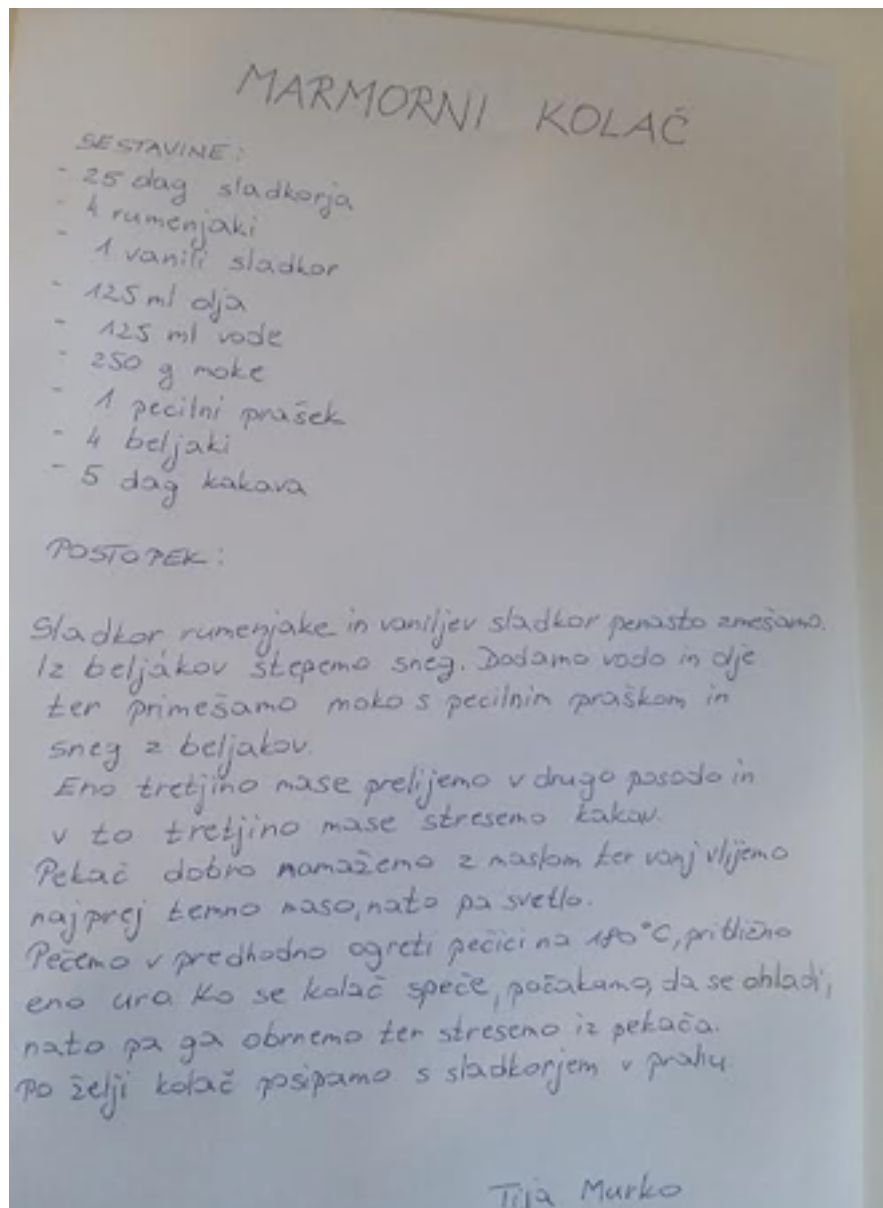 MARMORNI KOLAČ
SESTAVINE:
- 25 dag sladkorja
- 4 rumenjaki
- 1 vanili sladkor
- 125 ml olja
- 125 ml vode
- 250 g moke
- 1 pecilni prašek
- 4 beljaki
- 5 dag kakava
POSTOPEK:
Sladkor rumenjake in vaniljev sladkor penasto zmešamo.
Iz beljakov stepemo sneg. Dodamo vodo in olje
ter primešamo moko s pecilnim praškom in
sneg z beljakov.
Eno tretjino mase prelijemo v drugo posodo in
v to tretjino mase stresemo kakav.
Pekač dobro namažemo z maslom ter vanj vlijemo
najprej temno maso, nato pa svetlo.
Pečemo v predhodno ogreti pečici na 180°C, približno
eno uro. Ko se kolač speče, počakamo, da se ohladi,
nato pa ga obrnemo ter stresemo iz pekača.
Po želji kolač posipamo s sladkorjem v prahu.
Tija Murko